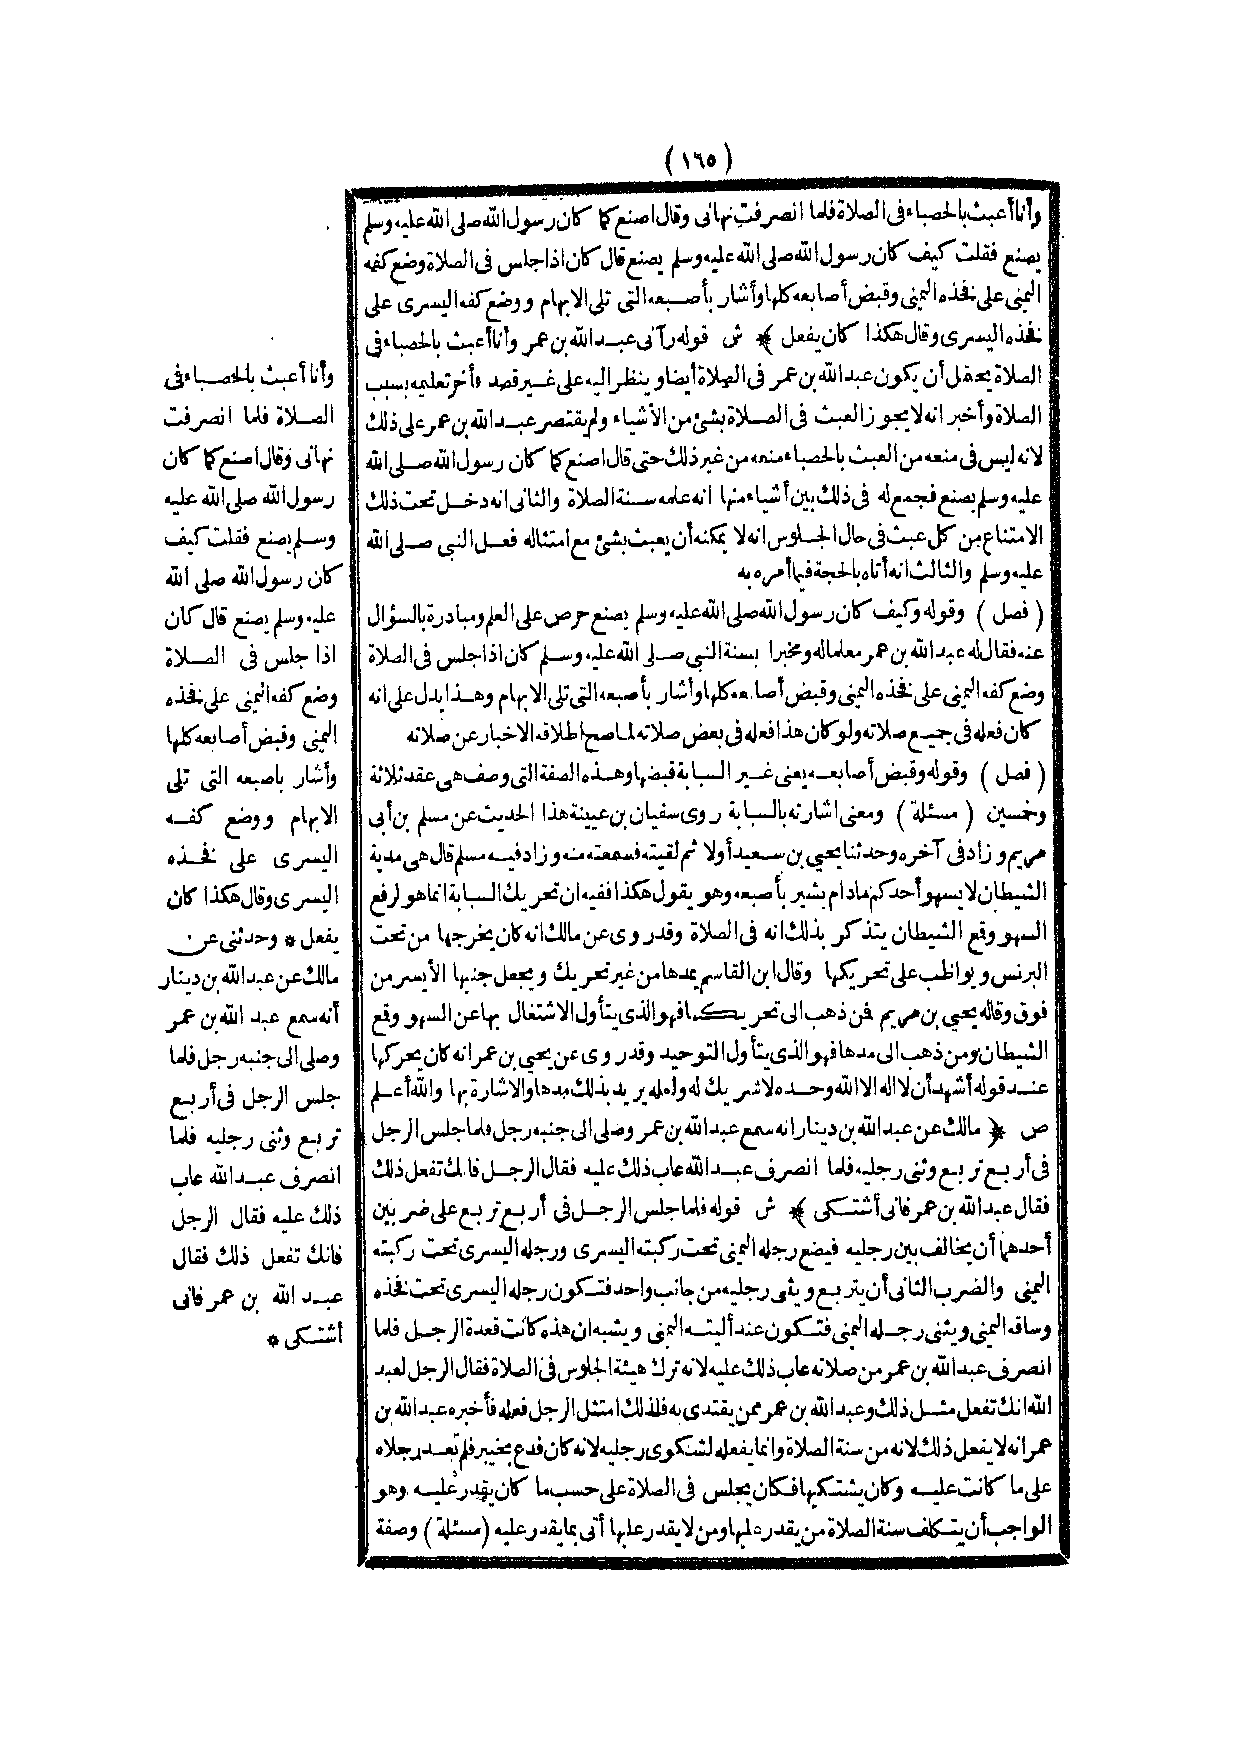 (١٦٥)
وأنا أعبث بالحصباء فى الصلاة فلما انصرفت نهانى وقال اصنع كما كان رسول الله صلى الله عليه وسلم
يصنع فقلت كيف كان رسول الله صلى الله عليه وسلم يصنع قال كان اذا جلس فى الصلاة وضع كفه
اليمنى على فخذه اليمنى وقبض أصابعه كلها وأشار بأصبعه التى تلى الابهام ووضع كفه اليسرى على
فخذه اليسرى وقال هكذا كان يفعل ﴾ ش قوله رآنى عبد الله بن عمر وأنا أعبث بالحصباء فى
الصلاة يحتمل أن يكون عبد الله بن عمر فى الصلاة أيضا وينظر اليه على غير قصد وأخر تعليمه بسبب
الصلاة وأخبر انه لا يجوز العبث فى الصلاة بشئ من الأشياء ولم يقتصر عبد الله بن عمر على ذلك
لانه ليس فى منعه من العبث بالحصباء منعه من غير ذلك حتى قال اصنع كما كان رسول الله صلى الله
عليه وسلم يصنع فجمع له فى ذلك بين أشياء منها انه علمه سنة الصلاة والثانى انه دخل تحت ذلك
الامتناع من كل عبث فى حال الجلوس انه لا يمكنه أن يعبث بشئ مع امتثاله فعل النبى صلى الله
عليه وسلم والثالث انه أتاه بالحجة فيما أمره به
(فصل) وقوله وكيف كان رسول الله صلى الله عليه وسلم يصنع حرص على العلم ومبادرة بالسؤال
عنه فقال له عبد الله بن عمر معلما له ومخبرا بسنة النبى صلى الله عليه وسلم كان اذا جلس فى الصلاة
وضع كفه اليمنى على فخذه اليمنى وقبض أصابعه كلها وأشار بأصبعه التى تلى الابهام وهذا يدل على انه
كان فعله فى جميع صلاته ولو كان هذا فعله فى بعض صلاته لما صح اطلاقه الاخبار عن صلاته
(فصل) وقوله وقبض أصابعه يعنى غير السبابة قبضها وهذه الصفة التى وصف هى عقد ثلاثة
وخمسين (مسئلة) ومعنى اشارته بالسبابة روى سفيان بن عيينة هذا الحديث عن مسلم بن أبى
مريم وزاد فى آخره وحدثنا يحيى بن سعيد أولا ثم لقيته فسمعته منه وزاد فيه مسلم قال هى مدية
الشيطان لا يسهو أحدكم مادام يشير بأصبعه وهو يقول هكذا ففيه ان تحريك السبابة انما هو لرفع
السهو وقع الشيطان يتذكر بذلك انه فى الصلاة وقد روى عن مالك انه كان يخرجها من تحت
البرنس ويواظب على تحريكها وقال ابن القاسم يمدها من غير تحريك ويجعل جنبها الأيسر من
فوق وقاله يحيى بن مريم فمن ذهب الى تحريكها فهو الذى يتأول الاشتغال بها عن السهو وقع
الشيطان ومن ذهب الى مدها فهو الذى يتأول التوحيد وقد روى عن يحيى بن عمر انه كان يحركها
عند قوله أشهد أن لا اله الا الله وحده لا شريك له ولعله يريد بذلك مدها والاشارة بها والله أعلم
ص ﴿ مالك عن عبد الله بن دينار انه سمع عبد الله بن عمر وصلى الى جنبه رجل فلما جلس الرجل
فى أربع تربع وثنى رجليه فلما انصرف عبد الله عاب ذلك عليه فقال الرجل فانك تفعل ذلك
فقال عبد الله بن عمر فانى أشتكى ﴾ ش قوله فلما جلس الرجل فى أربع تربع على ضربين
أحدهما أن يخالف بين رجليه فيضع رجله اليمنى تحت ركبته اليسرى ورجله اليسرى تحت ركبته
اليمنى والضرب الثانى أن يتربع ويثنى رجليه من جانب واحد فتكون رجله اليسرى تحت فخذه
وساقه اليمنى ويثنى رجله اليمنى فتكون عند أليته اليمنى ويشبه ان هذه كانت قعدة الرجل فلما
انصرف عبد الله بن عمر من صلاته عاب ذلك عليه لانه ترك هيئة الجلوس فى الصلاة فقال الرجل لعبد
الله انك تفعل مثل ذلك وعبد الله بن عمر ممن يقتدى به فلذلك امتثل الرجل فعله فأخبره عبد الله بن
عمر انه لا يفعل ذلك لانه من سنة الصلاة وانما يفعله لشكوى رجليه لانه كان فدع بخيبر فلم تعد رجلاه
على ما كانت عليه وكان يشتكيها فكان يجلس فى الصلاة على حسب ما كان يقدر عليه وهو
الواجب أن يتكلف سنة الصلاة من يقدر عليها ومن لا يقدر عليها أتى بما يقدر عليه (مسئلة) وصفة
وأنا أعبث بالحصباء فى
الصلاة فلما انصرفت
نهانى وقال اصنع كما كان
رسول الله صلى الله عليه
وسلم يصنع فقلت كيف
كان رسول الله صلى الله
عليه وسلم يصنع قال كان
اذا جلس فى الصلاة
وضع كفه اليمنى على فخذه
اليمنى وقبض أصابعه كلها
وأشار باصبعه التى تلى
الابهام ووضع كفه
اليسرى على فخذه
اليسرى وقال هكذا كان
يفعل * وحدثنى عن
مالك عن عبد الله بن دينار
أنه سمع عبد الله بن عمر
وصلى الى جنبه رجل فلما
جلس الرجل فى أربع
تربع وثنى رجليه فلما
انصرف عبد الله عاب
ذلك عليه فقال الرجل
فانك تفعل ذلك فقال
عبد الله بن عمر فانى
أشتكى *